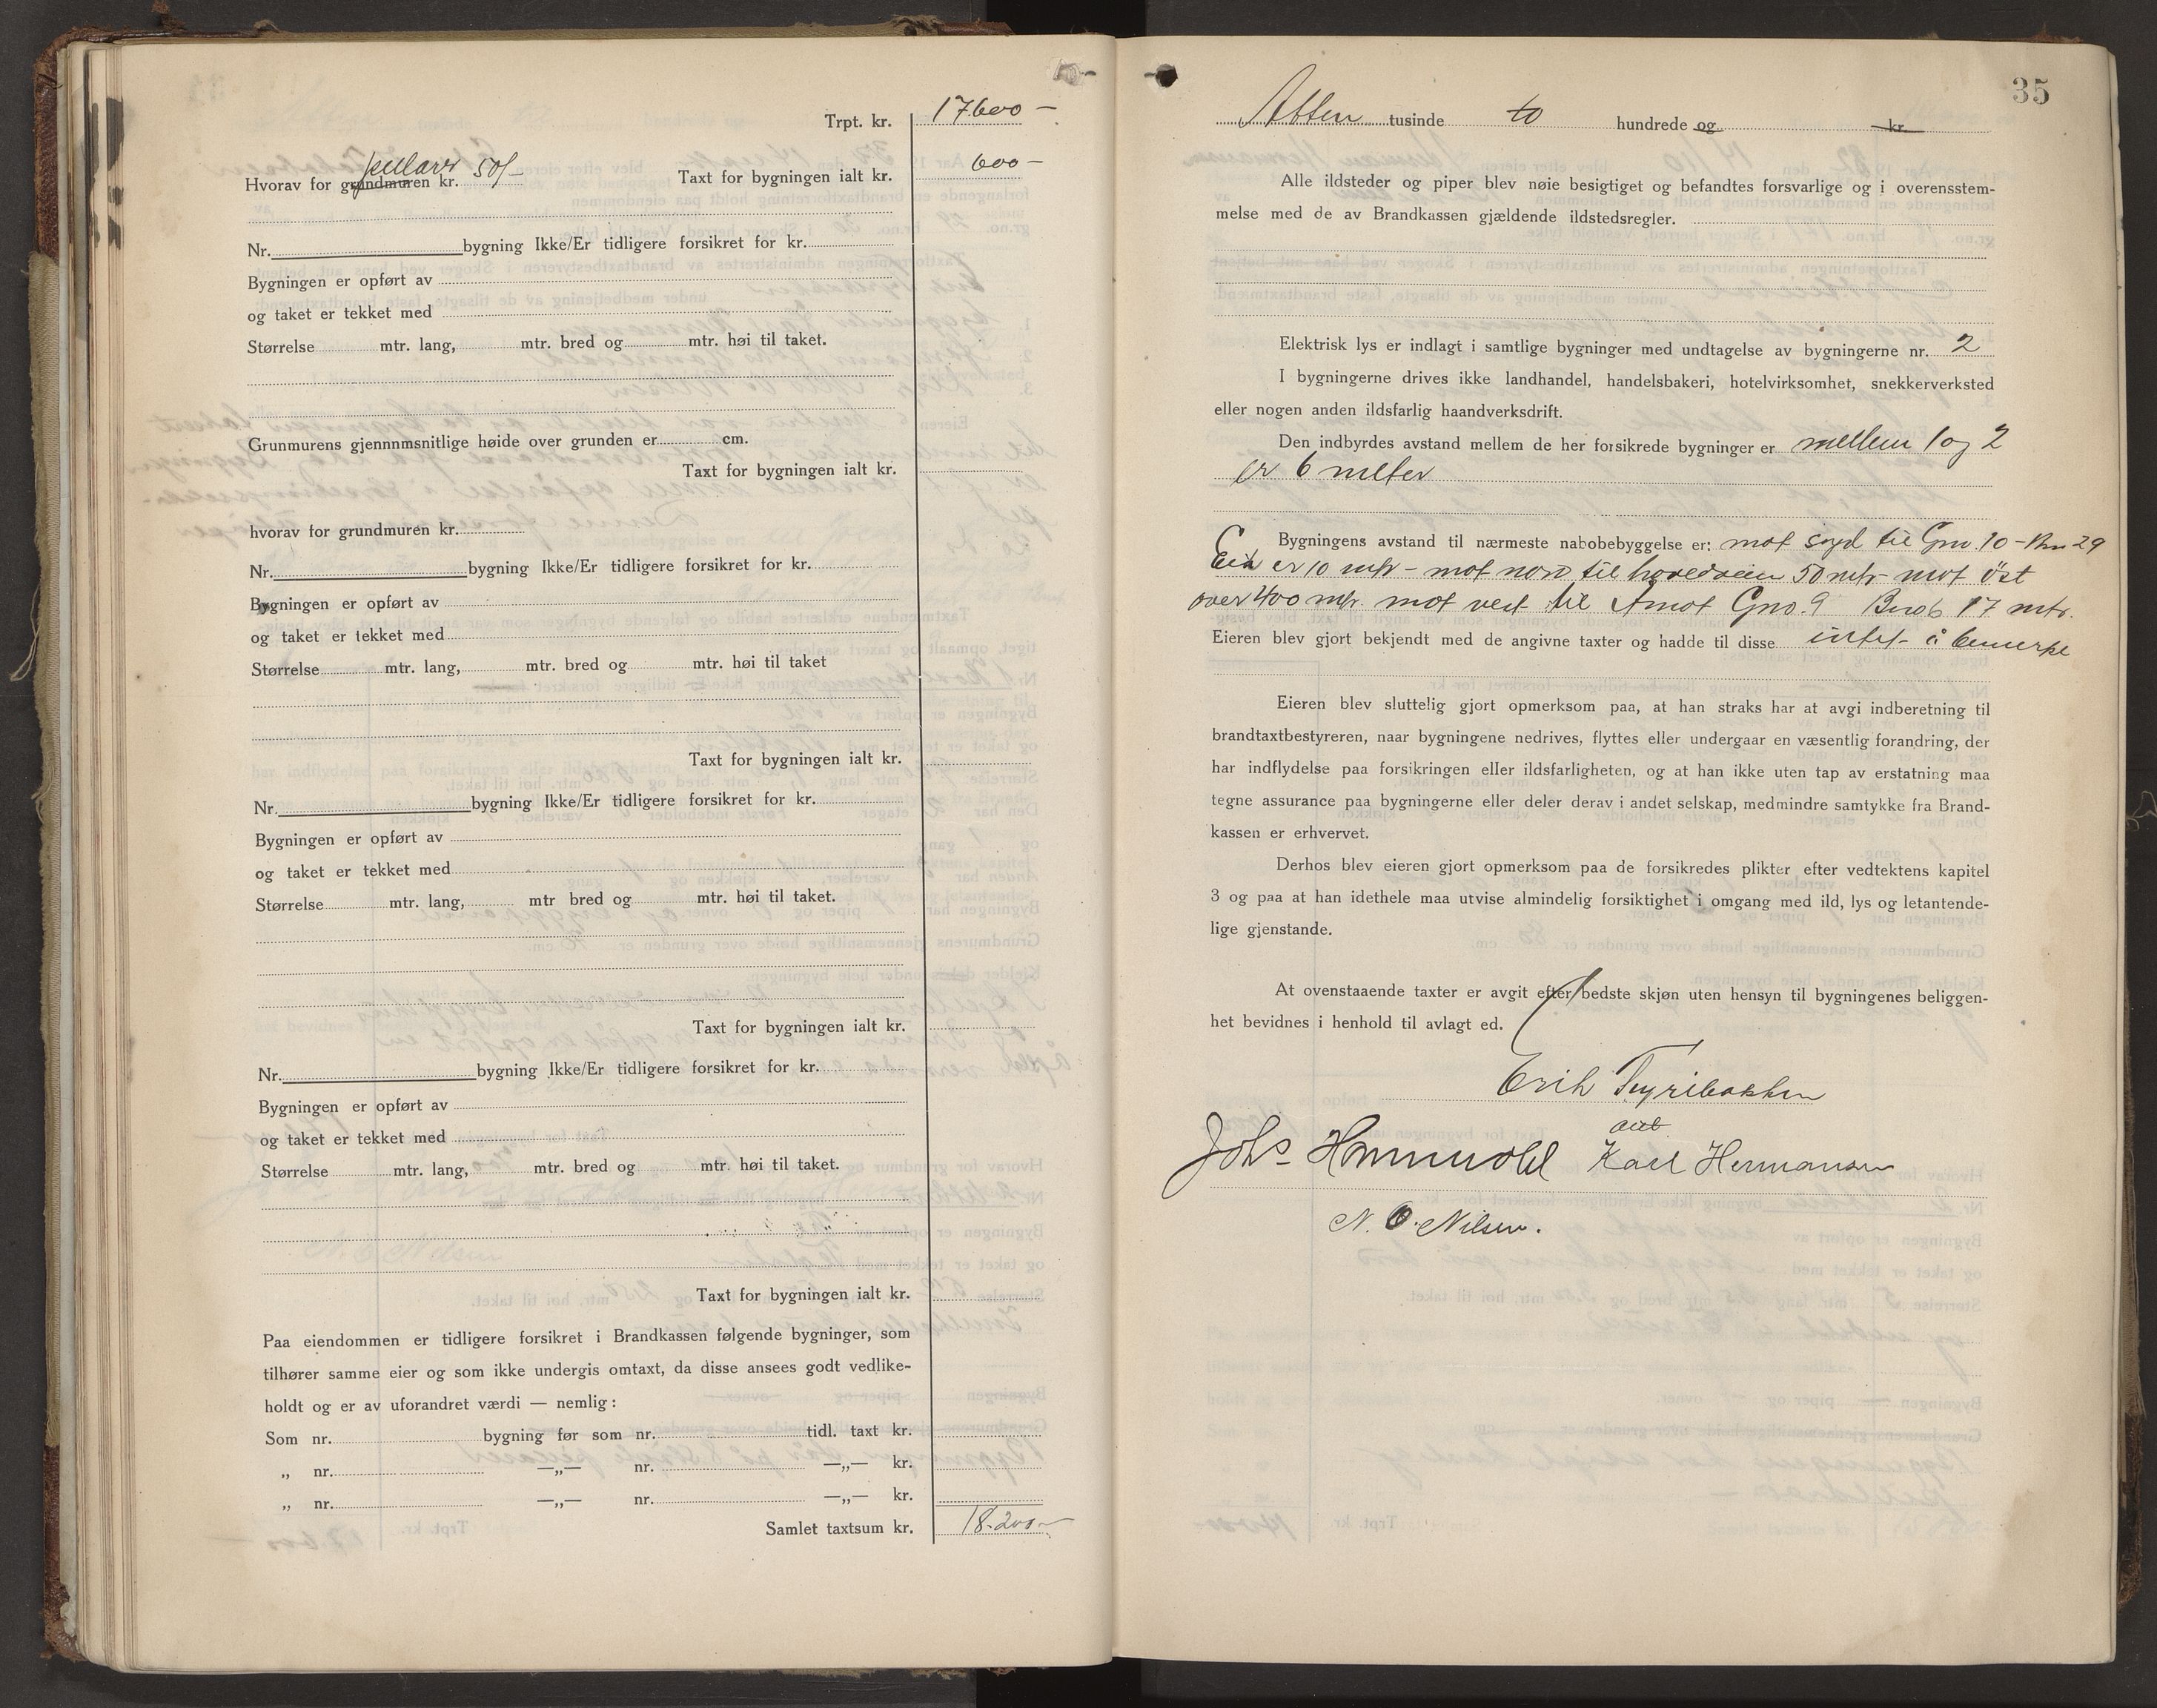 Trpt. kr. 17600 —
pillarer
Hvorav for grundmuren kr. 50/- Taxt for bygningen ialt kr. 600 —
Nr. bygning Ikke/Er tidligere forsikret for kr.
Bygningen er opført av
og taket er tekket med
Størrelse mtr. lang, mtr. bred og mtr. høi til taket.
Grunmurens gjennnmsnitlige høide over grunden er cm.
Taxt for bygningen ialt kr.
hvorav for grundmuren kr.
Nr. bygning Ikke/Er tidligere forsikret for kr.
Bygningen er opført av
og taket er tekket med
Størrelse mtr. lang, mtr. bred og mtr. høi til taket
Taxt for bygningen ialt kr.
Nr. bygning Ikke/Er tidligere forsikret for kr.
Bygningen er opført av
og taket er tekket med
Størrelse mtr. lang, mtr bred og mtr. høi til taket.
Taxt for bygningen ialt kr.
Nr. bygning Ikke/Er tidligere forsikret for kr.
Bygningen er opført av
og taket er tekket med
Størrelse mtr. lang, mtr. bred og mtr. høi til taket.
Taxt for bygningen ialt kr.
Paa eiendommen er tidligere forsikret i Brandkassen følgende bygninger, som
tilhører samme eier og som ikke undergis omtaxt, da disse ansees godt vedlike-
holdt og er av uforandret værdi — nemlig:
Som nr. bygning før som nr. tidl. taxt kr.
„ nr. —„— nr. —„— kr.
„ nr. —„— nr. —„— kr.
Samlet taxtsum kr. 18.200 —
35
Atten tusinde to hundrede og kr.
Alle ildsteder og piper blev nøie besigtiget og befandtes forsvarlige og i overensstem-
melse med de av Brandkassen gjældende ildstedsregler.
Elektrisk lys er indlagt i samtlige bygninger med undtagelse av bygningerne nr. 2
I bygningerne drives ikke landhandel, handelsbakeri, hotelvirksomhet, snekkerverksted
eller nogen anden ildsfarlig haandverksdrift.
Den indbyrdes avstand mellem de her forsikrede bygninger er mellem 1 og 2
er 6 meter
Bygningens avstand til nærmeste nabobebyggelse er: mot syd til Gno. 10 - Bno 29
Eik er 10 mtr - mot nord til hovedveien 50 mtr - mot öst
over 400 mtr. mot vest til Åmot Gno. 9 Bno 6 17 mtr.
Eieren blev gjort bekjendt med de angivne taxter og hadde til disse intet å bemerke
Eieren blev sluttelig gjort opmerksom paa, at han straks har at avgi indberetning til
brandtaxtbestyreren, naar bygningene nedrives, flyttes eller undergaar en væsentlig forandring, der
har indflydelse paa forsikringen eller ildsfarligheten, og at han ikke uten tap av erstatning maa
tegne assurance paa bygningerne eller deler derav i andet selskap, medmindre samtykke fra Brand-
kassen er erhvervet.
Derhos blev eieren gjort opmerksom paa de forsikredes plikter efter vedtektens kapitel
3 og paa at han idethele maa utvise almindelig forsiktighet i omgang med ild, lys og letantende-
lige gjenstande.
At ovenstaaende taxter er avgit efter bedste skjøn uten hensyn til bygningenes beliggen-
het bevidnes i henhold til avlagt ed.
Erik Tyribakken
aut
Johs Hunnvold Karl Hermansen
N. O. Nilsen.